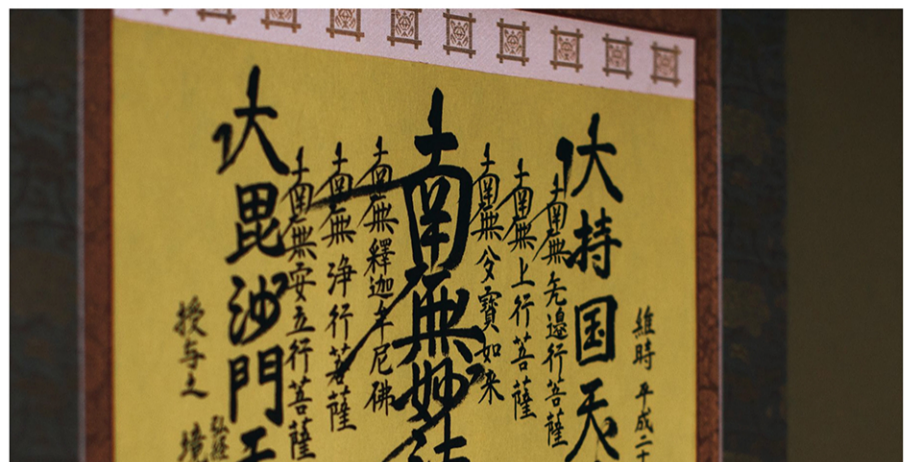 維時 平成二十
大持国天
南無无邊行菩薩
南無上行菩薩
南無多寶如来
南無妙法
南無釋迦牟尼佛
南無浄行菩薩
南無安立行菩薩
大毘沙門天
授与之